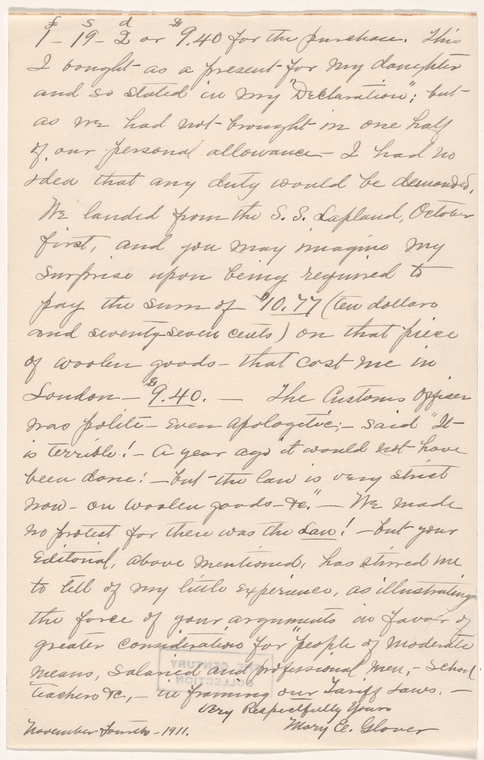 £ s d $
1 - 19 - 2 or 9.40 for the purchase. This
I bought as a present for my daughter
and so stated in my "Declaration"; but
as we had not brought in one half
of our personal allowance - I had no
idea that any duty would be demanded.
We landed from the S.S. Lapland, October
first, and you may imagine my
surprise upon being required to
pay the sum of $10.77 (ten dollars
and seventy-seven cents) on that piece
of woolen goods - that cost me in
London - $9.40. - The Customs Officer
was polite - even apologetic; - said "It
is terrible! - A year ago it would not have
been done! - but the law is very strict
now - on woolen goods - &c." - We made
no protest for there was the Law! - but your
Editorial, above mentioned, has stirred me
to tell of my little experience, as illustrating
the force of your arguments in favor of
greater considerations for "people of moderate
means, salaried and professional men, - school
teachers &c., - in framing our Tariff Laws. -
Very Respectfully Yours
November Fourth - 1911. Mary E. Glover
THE CENTURY
COLLECTION